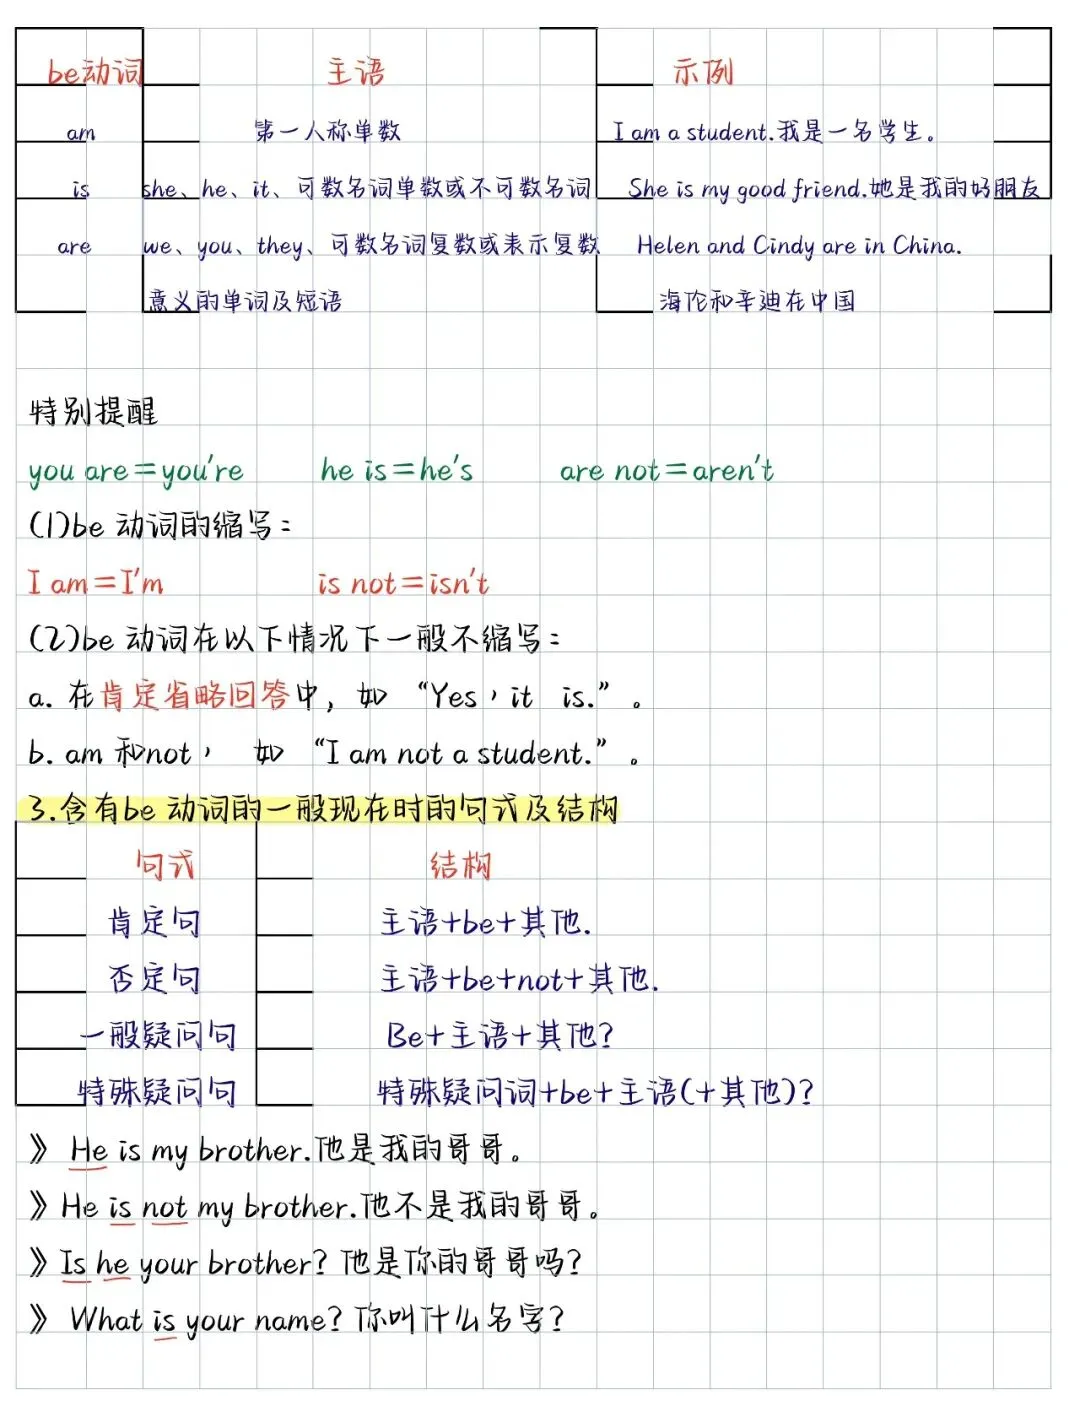 be动词 主语 示例
am 第一人称单数 I am a student.我是一名学生。
is she、he、it、可数名词单数或不可数名词 She is my good friend.她是我的好朋友
are we、you、they、可数名词复数或表示复数 Helen and Cindy are in China.
意义的单词及短语 海伦和辛迪在中国
特别提醒
you are=you're he is=he's are not=aren't
(1)be 动词的缩写:
I am=I'm is not=isn't
(2)be 动词在以下情况下一般不缩写:
a. 在肯定省略回答中, 如 “Yes,it is.”。
b. am 和not, 如 “I am not a student.”。
3.含有be 动词的一般现在时的句式及结构
句式 结构
肯定句 主语+be+其他.
否定句 主语+be+not+其他.
一般疑问句 Be+主语+其他?
特殊疑问句 特殊疑问词+be+主语(+其他)?
》 He is my brother.他是我的哥哥。
》He is not my brother.他不是我的哥哥。
》Is he your brother? 他是你的哥哥吗?
》 What is your name? 你叫什么名字?